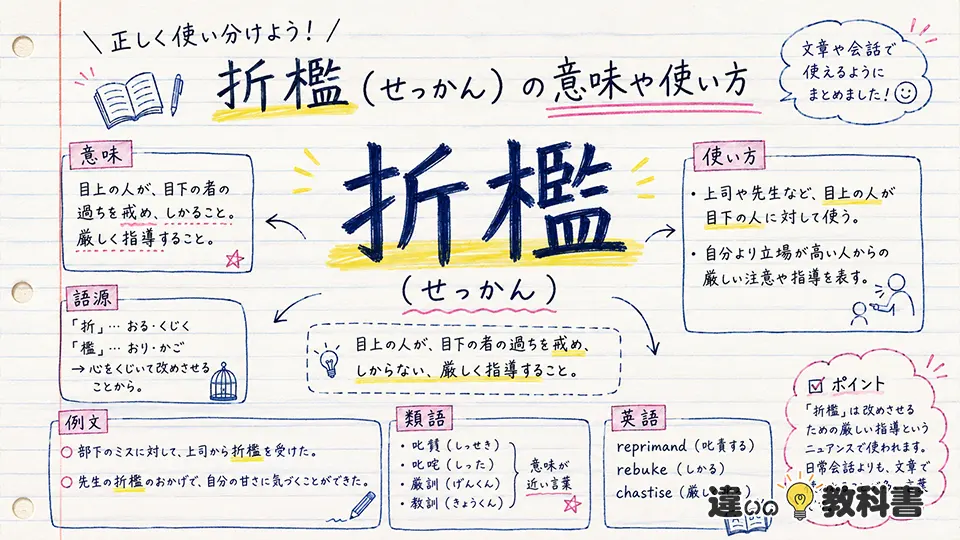 正しく使い分けよう！
折檻（せっかん）の意味や使い方
文章や会話で
使えるように
まとめました！
折檻
（せっかん）
意味
目上の人が、目下の者の
過ちを戒め、しかること。
厳しく指導すること。
使い方
・上司や先生など、目上の人が
目下の人に対して使う。
・自分より立場が高い人からの
厳しい注意や指導を表す。
語源
「折」… おる・くじく
「檻」… おり・かご
→ 心をくじいて改めさせる
ことから。
目上の人が、目下の者の過ちを戒め、
しからない、厳しく指導すること。
例文
○ 部下のミスに対して、上司から折檻を受けた。
○ 先生の折檻のおかげで、自分の甘さに気づくことができた。
類語
・叱（しっせき）
・叱咤（しった）
・厳訓（げんくん）
・教訓（きょうくん）
意味が
近い言葉
英語
reprimand（叱責する）
rebuke（しかる）
chastise（厳し
ポイント
「折檻」は改めさせる
ための厳しい指導という
ニュアンスで使われます。
日常会話よりも、文章で
言葉
違いの教科書